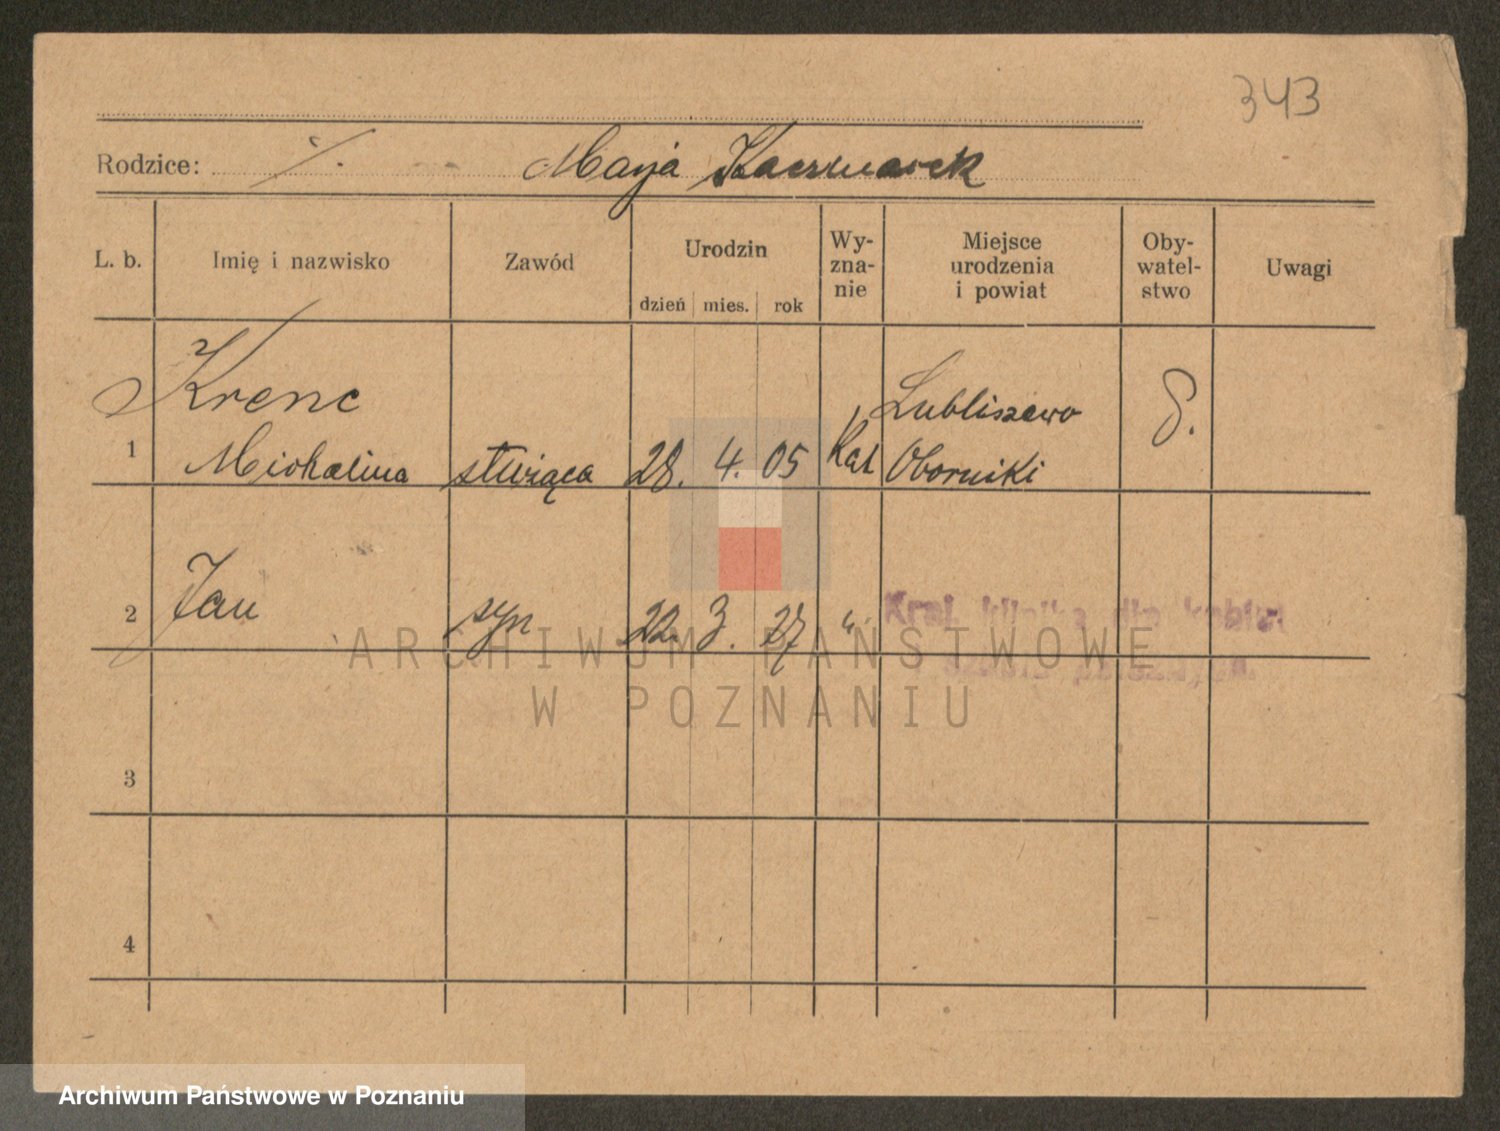 343
Rodzice: ·/. Marja Kaczmarek
L. b. Imię i nazwisko Zawód Urodzin dzień mies. rok Wy-zna-nie Miejsce urodzenia i powiat Oby-watel-stwo Uwagi
Krenc Lubliszewo
1 Michalina służąca 28. 4. 05 Kat Oborniki
2 Jan syn 22. 3. 27 "
Kraj. klinika dla kobiet
3
4
ARCHIWUM PAŃSTWOWE
W POZNANIU
Archiwum Państwowe w Poznaniu